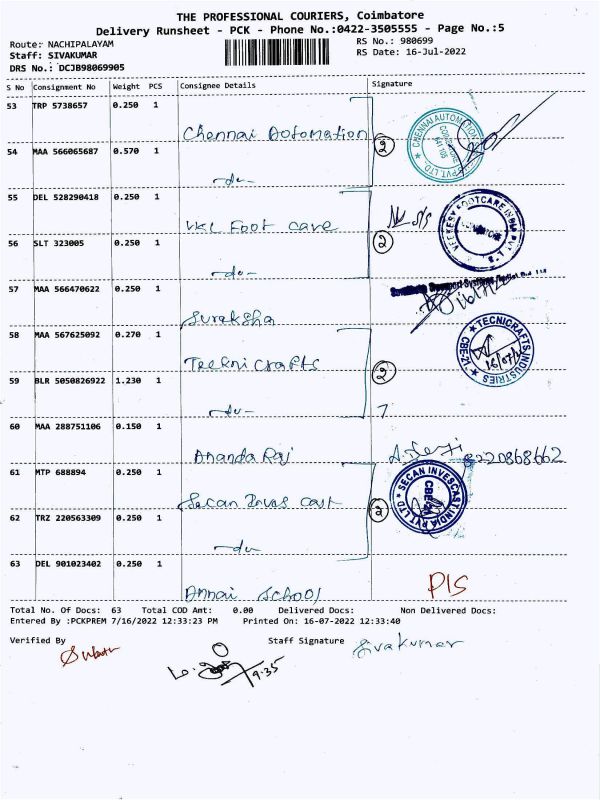 THE PROFESSIONAL COURIERS, Coimbatore
Delivery Runsheet - PCK - Phone No.:0422-3505555 - Page No.:5
Route: NACHIPALAYAM RS No.: 980699
Staff: SIVAKUMAR RS Date: 16-Jul-2022
DRS No.: DCJB98069905
S No Consignment No Weight PCS Consignee Details Signature
53 TRP 5738657 0.250 1
Chennai Automation
2
CHENNAI AUTOMATION PVT. LTD
54 MAA 566065687 0.570 1
-do-
55 DEL 528290418 0.250 1
VKC Foot care
2
56 SLT 323005 0.250 1
-do-
57 MAA 566470622 0.250 1
Suraksha
58 MAA 567625092 0.270 1
Tecknicrafts
2
TECNICRAFTS INDUSTRIES
CBE-21
59 BLR 5050826922 1.230 1
-do-
60 MAA 288751106 0.150 1
Ananda Raj
8220868662
61 MTP 688894 0.250 1
Secan Inves cast
2
SECAN INVESCAST INDIA PVT LTD
CBE-21
62 TRZ 220563309 0.250 1
-do-
63 DEL 901023402 0.250 1
Annai School
P/S
Total No. Of Docs: 63 Total COD Amt: 0.00 Delivered Docs: Non Delivered Docs:
Entered By :PCKPREM 7/16/2022 12:33:23 PM Printed On: 16-07-2022 12:33:40
Verified By Staff Signature Sivakumar
9.35